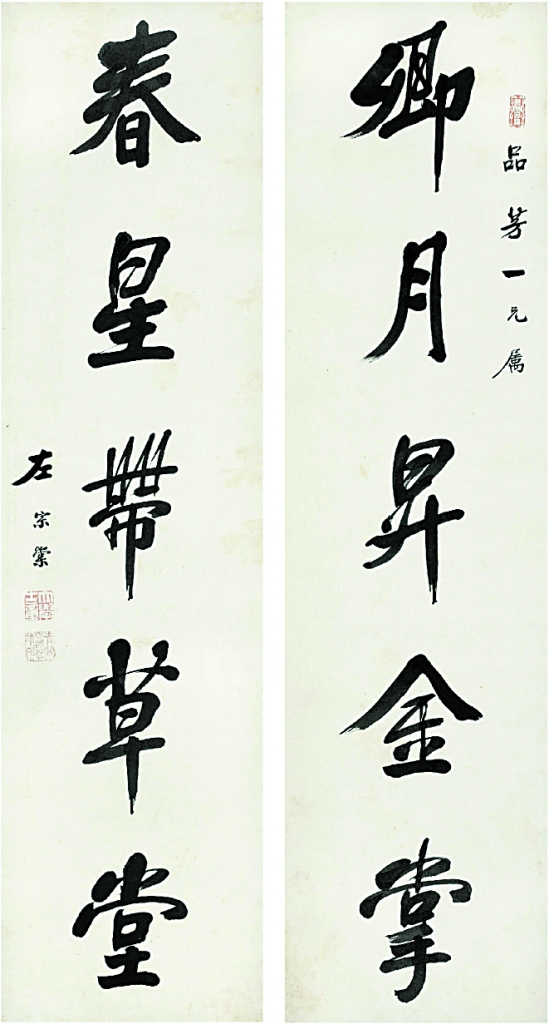 品芳一兄属
卿月昇金掌
春星带草堂
左宗棠